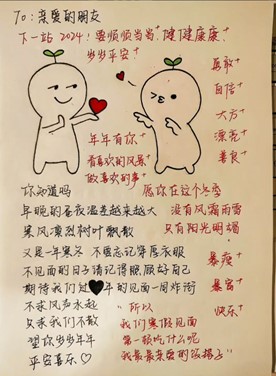 TO：亲爱的朋友
下一站 2024！要顺顺当当⁺ 健健康康⁺
岁岁平安⁺
勇敢⁺
自信⁺
大方⁺
漂亮⁺
善良⁺
年年有你⁺
看喜欢的风景⁺
做喜欢的事⁺
你知道吗
年晚的昼夜温差越来越大
寒风凛冽树叶飘散
又是一年寒冬 不要忘记穿厚衣服
不见面的日子请记得照顾好自己
期待我们过年的见面一同炸街
不求风生水起
只求我们不散
望你岁岁年年
平安喜乐♡
愿你在这个冬季
没有风霜雨雪
只有阳光明媚
暴瘦⁺
暴富⁺
快乐⁺
“所以
我们寒假见面
第一顿吃什么呢
我最最亲爱的饭搭子”